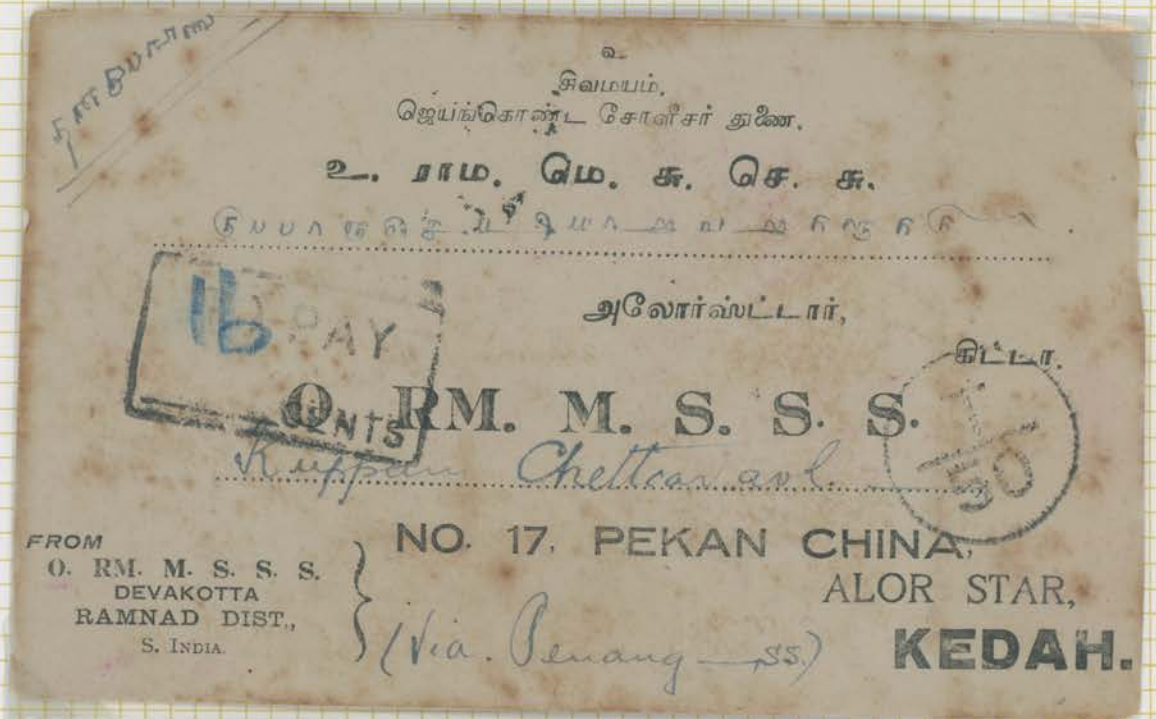 உ
சிவமயம்.
ஜெயங்கொண்ட சோளீசர் துணை.
உ. ராம. மெ. சு. செ. சு.
அலோர்ஸ்ட்டார்,
கிட்டா.
16
PAY
CENTS
T
50
O. RM. M. S. S. S.
Chettiar avl.
FROM
O. RM. M. S. S. S.
DEVAKOTTA
RAMNAD DIST.,
S. INDIA.
NO. 17, PEKAN CHINA,
ALOR STAR,
KEDAH.
(Via. Penang — SS.)